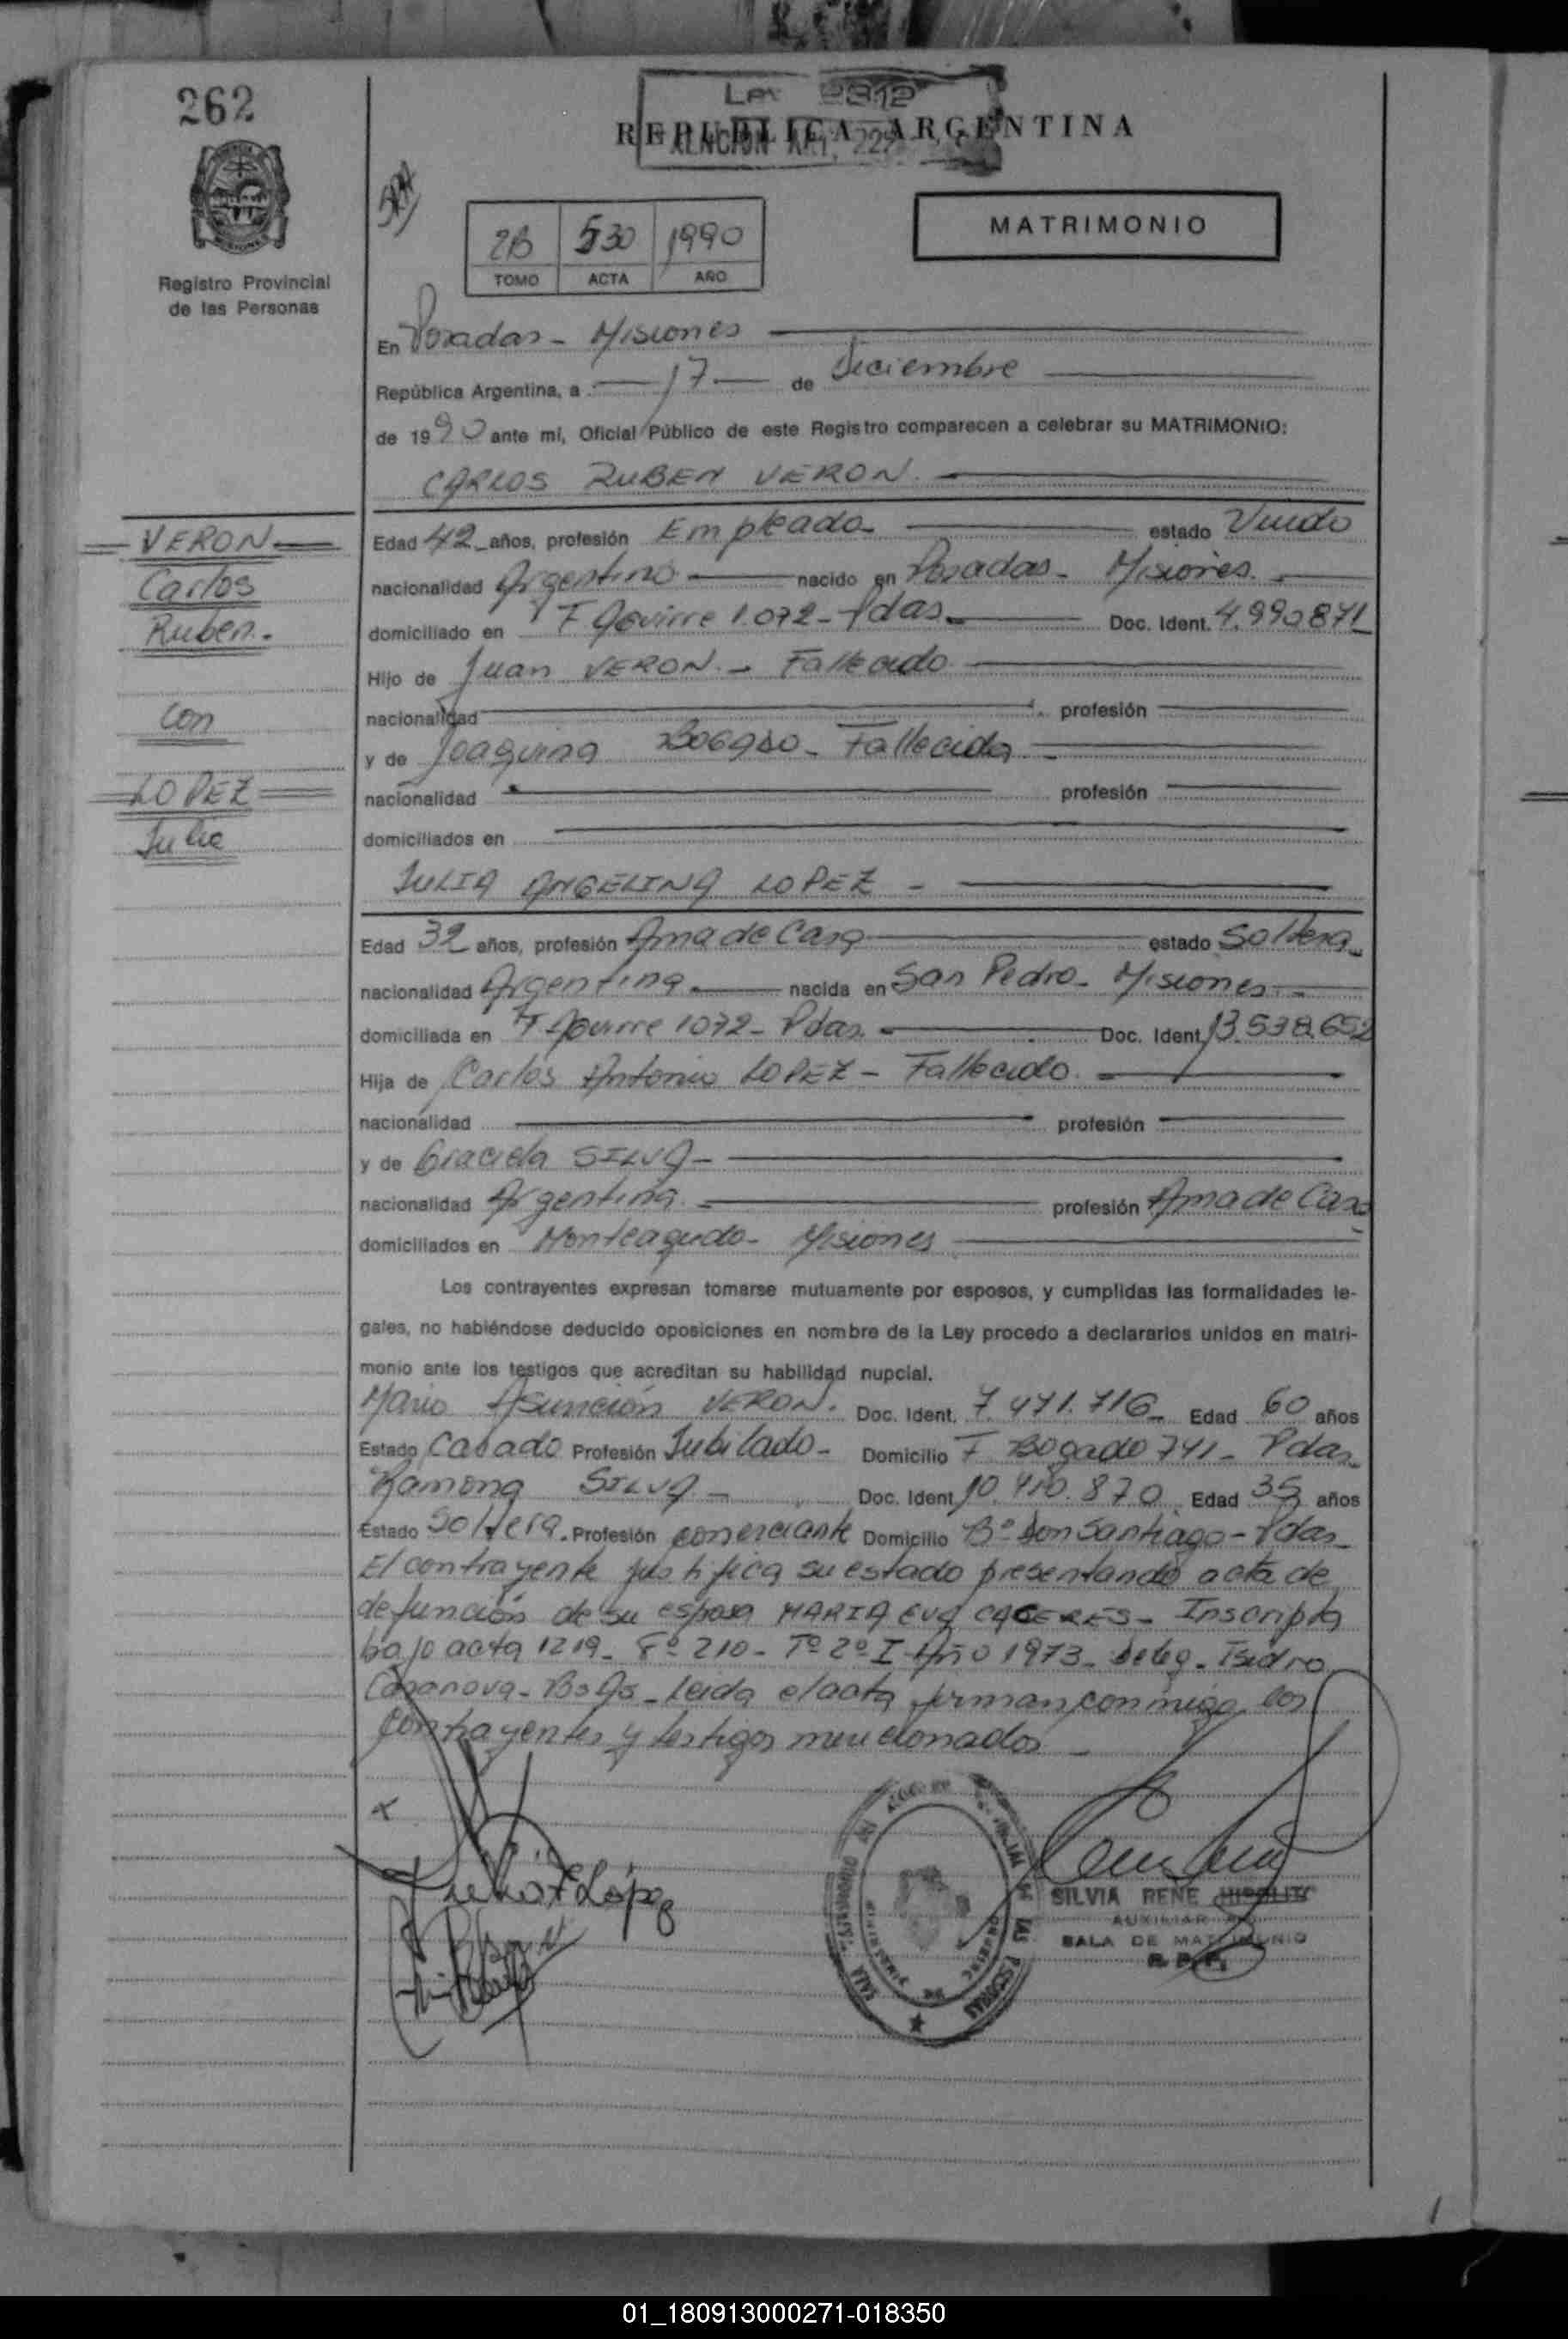 262
Ley 2312
REPUBLICA ARGENTINA
MATRIMONIO
2B 530 1990
TOMO ACTA AÑO
Registro Provincial
de las Personas
En Posadas - Misiones
República Argentina, a 17 de Diciembre
de 1990 ante mí, Oficial Público de este Registro comparecen a celebrar su MATRIMONIO:
CARLOS RUBEN VERON.
VERON
Carlos
Ruben.-
con
LOPEZ
Julia
Edad 42 años, profesión Empleado estado Viudo
nacionalidad Argentino nacido en Posadas - Misiones.
domiciliado en F Aguirre 1.072 - Pdas. Doc. Ident. 4.990.871
Hijo de Juan VERON. - Fallecido
nacionalidad profesión
y de Joaquina BOGADO - Fallecida
nacionalidad profesión
domiciliados en
JULIA ANGELINA LOPEZ -
Edad 32 años, profesión Ama de Casa estado Soltera
nacionalidad Argentina. nacida en San Pedro - Misiones -
domiciliada en F Aguirre 1072 - Pdas. Doc. Ident. 13.538.652
Hija de Carlos Antonio LOPEZ - Fallecido.
nacionalidad profesión
y de Graciela SILVA -
nacionalidad Argentina. profesión Ama de Casa
domiciliados en Monteagudo - Misiones
Los contrayentes expresan tomarse mutuamente por esposos, y cumplidas las formalidades le-
gales, no habiéndose deducido oposiciones en nombre de la Ley procedo a declararlos unidos en matri-
monio ante los testigos que acreditan su habilidad nupcial.
Mario Asunción VERON. Doc. Ident. 7.471.716 Edad 60 años
Estado Casado Profesión Jubilado - Domicilio F Bogado 741 - Pdas.
Ramona SILVA - Doc. Ident. 10.410.870 Edad 35 años
Estado Soltera. Profesión comerciante Domicilio Bº Don Santiago - Pdas
El contrayente justifica su estado presentando acta de
defunción de su esposa MARIA EVA CACERES - Inscripta
bajo acta 1219 - Fº 210 - Tº 2º I Año 1973 - Deleg. Isidro
Casanova - Bs As - Leida el acta firman conmigo los
contrayentes y testigos mencionados -
x
López
SILVIA RENE HIPOLITO
AUXILIAR
SALA DE MATRIMONIO
R. P. P.
01_180913000271-018350